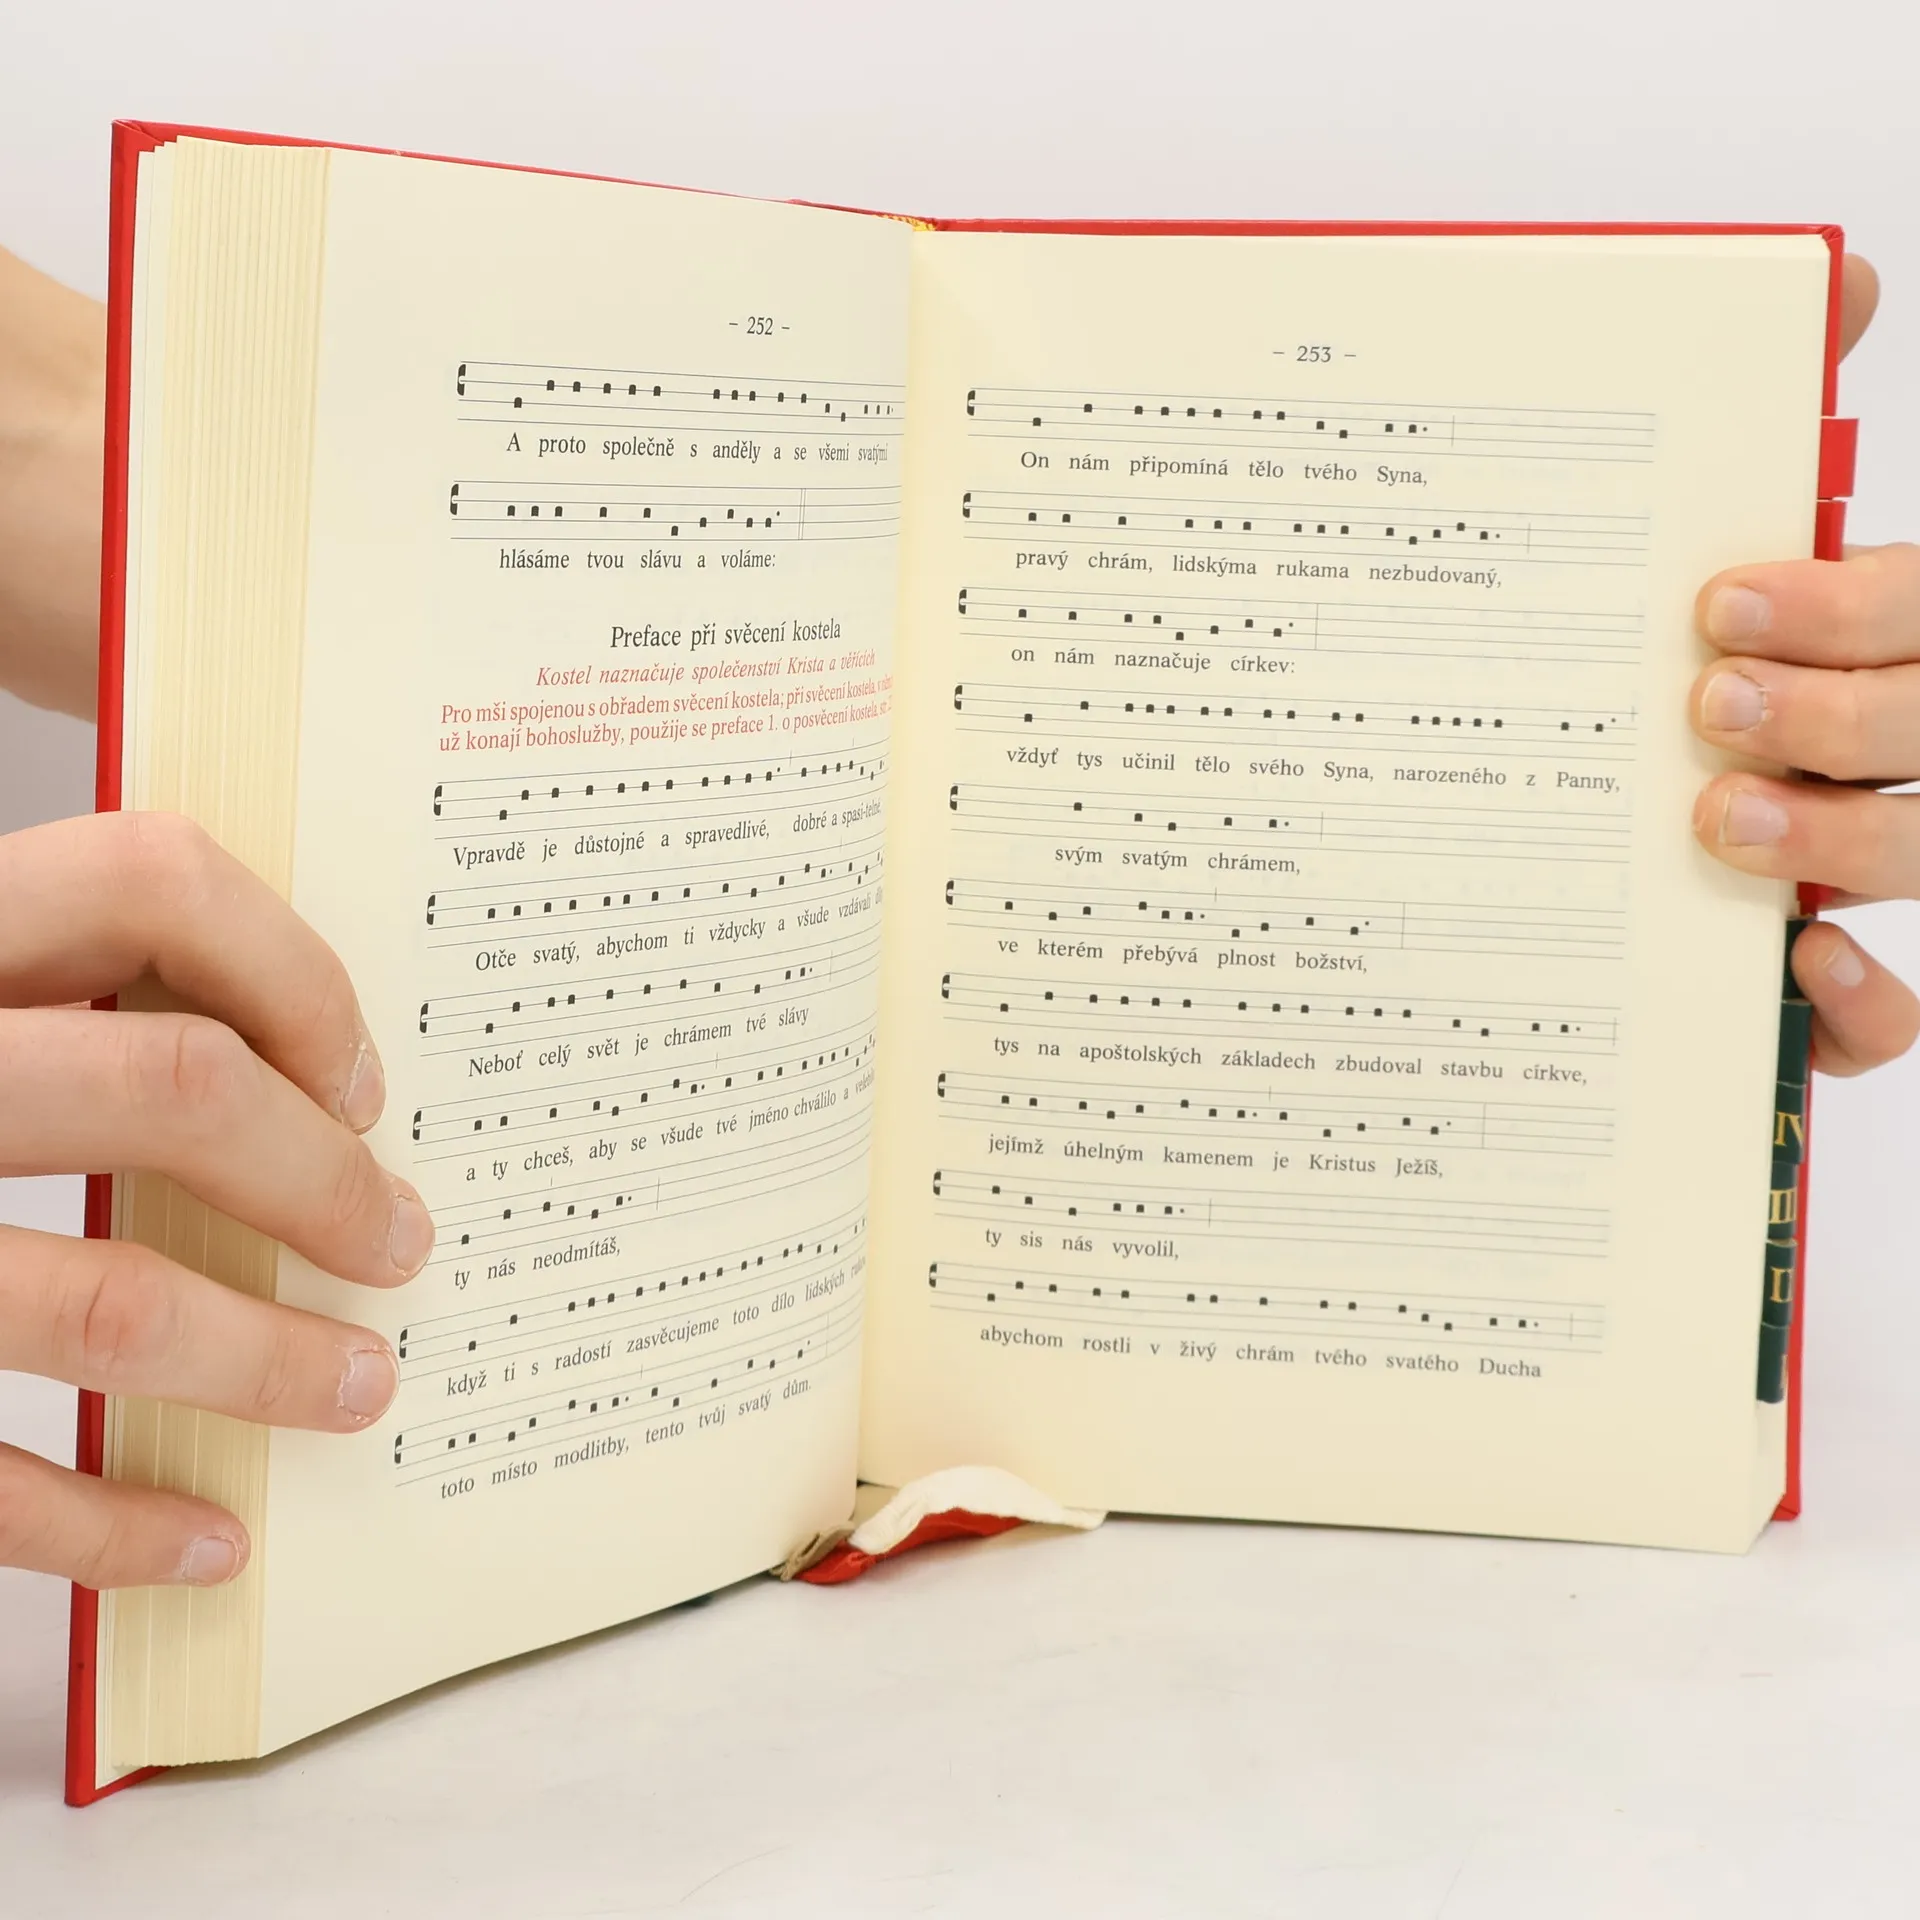 – 252 –
A proto společně s anděly a se všemi svatými
hlásáme tvou slávu a voláme:
Preface při svěcení kostela
Kostel naznačuje společenství Krista a věřících
Pro mši spojenou s obřadem svěcení kostela; při svěcení kostela, v
už konají bohoslužby, použije se preface 1. o posvěcení kostela, str.
Vpravdě je důstojné a spravedlivé, dobré a spasi-telné,
Otče svatý, abychom ti vždycky a všude vzdávali
Neboť celý svět je chrámem tvé slávy
a ty chceš, aby se všude tvé jméno chválilo a
ty nás neodmítáš,
když ti s radostí zasvěcujeme toto dílo lidských
toto místo modlitby, tento tvůj svatý dům.
– 253 –
On nám připomíná tělo tvého Syna,
pravý chrám, lidskýma rukama nezbudovaný,
on nám naznačuje církev:
vždyť tys učinil tělo svého Syna, narozeného z Panny,
svým svatým chrámem,
ve kterém přebývá plnost božství,
tys na apoštolských základech zbudoval stavbu církve,
jejímž úhelným kamenem je Kristus Ježíš,
ty sis nás vyvolil,
abychom rostli v živý chrám tvého svatého Ducha
IV
III